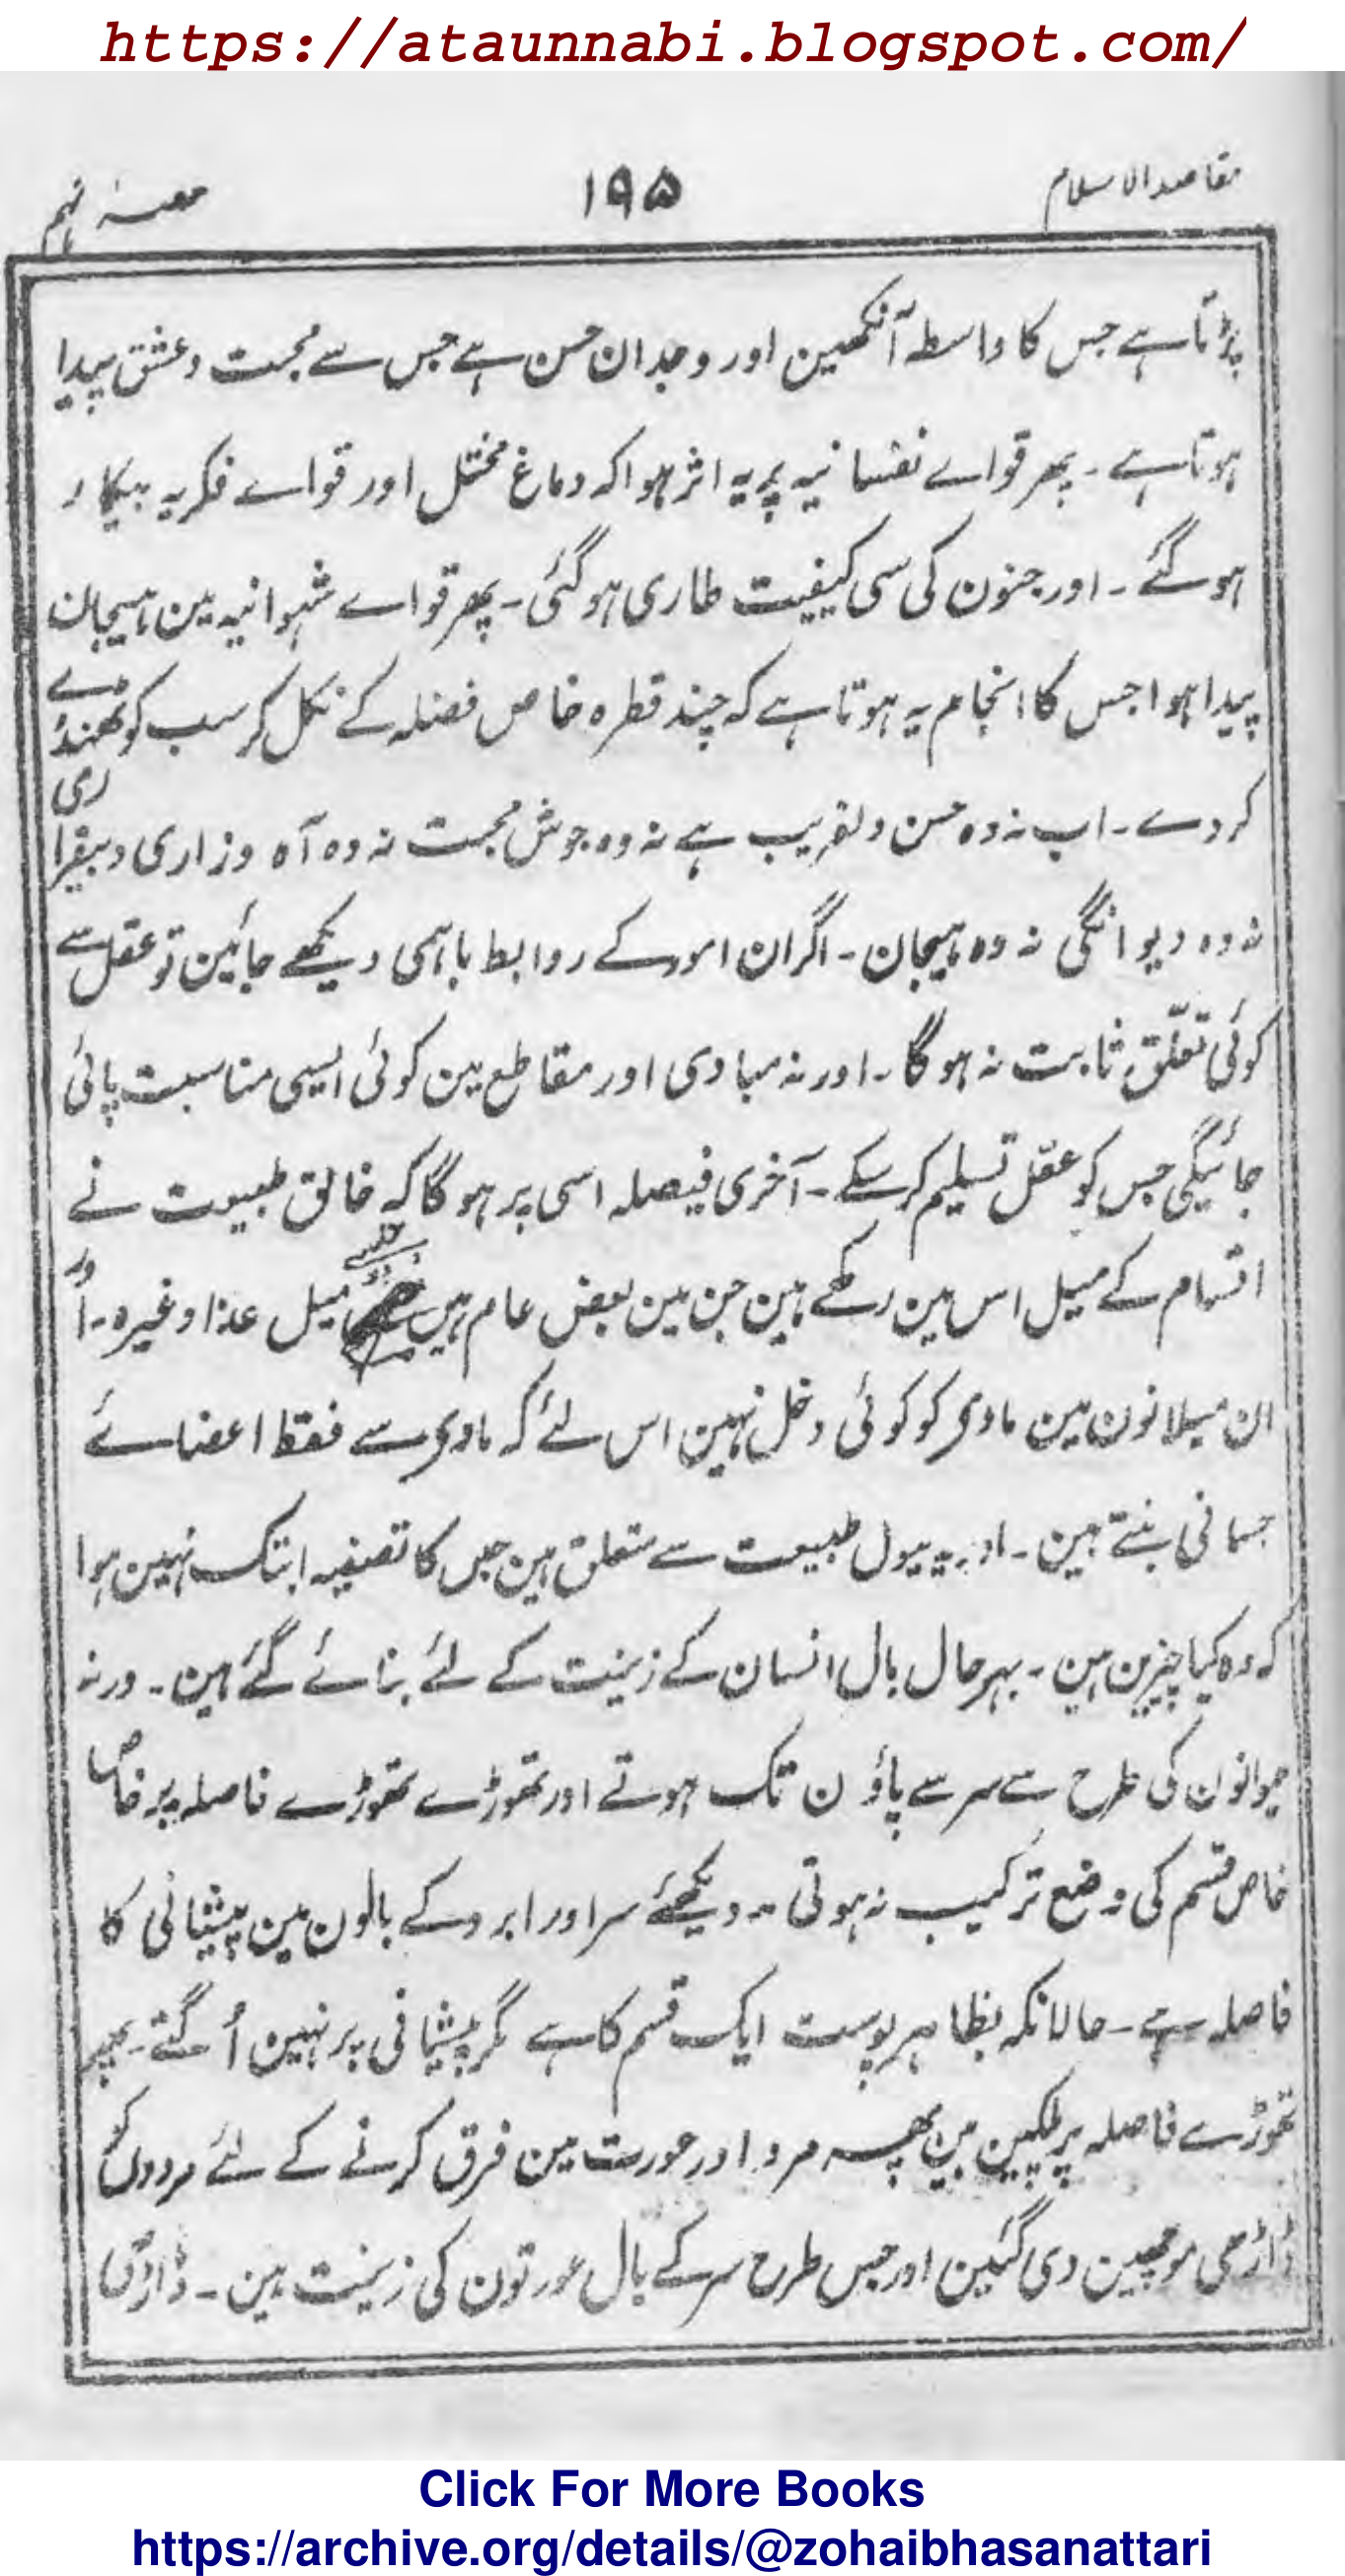 https://ataunnabi.blogspot.com/
مقاصد الاسلام ۱۹۵ حصۂ نہم
پڑتا ہے جس کا واسطہ آنکھین اور وجدان حسن ہے جس سے محبت و عشق پیدا
ہوتا ہے ۔ پھر قواے نفسانیہ پر یہ اثر ہوا کہ دماغ مختل اور قواے فکریہ بیکار
ہوگئے ۔ اور جنون کی سی کیفیت طاری ہوگئی ۔ پھر قواے شہوانیہ مین ہیجان
پیدا ہوا جس کا انجام یہ ہوتا ہے کہ چند قطرہ خاص فضلہ کے نکل کر سب کو ٹھنڈے
کردے ۔ اب نہ وہ حسن دلفریب ہے نہ وہ جوش محبت نہ وہ آہ و زاری و بیقراری
نہ وہ دیوانگی نہ وہ ہیجان ۔ اگر ان امور کے روابط باہمی دیکھے جائین تو عقل سے
کوئی تعلّق ثابت نہ ہوگا ۔ اور نہ مبادی اور مقاطع مین کوئی ایسی مناسبت پائی
جائیگی جس کو عقل تسلیم کرسکے ۔ آخری فیصلہ اسی پر ہوگا کہ خالق طبیعت نے
اقسام کے میل اس مین رکھے ہین جن مین بعض عام ہین جیسے میل غذا وغیرہ ۔ اور
ان میلانون مین مادہ کو کوئی دخل نہین اس لئے کہ مادہ سے فقط اعضائے
جسمانی بنتے ہین ۔ اور یہ میول طبیعت سے متعلق ہین جس کا تصفیہ ابتک نہین ہوا
کہ وہ کیا چیزین ہین ۔ بہرحال بال انسان کے زینت کے لئے بنائے گئے ہین ۔ ورنہ
حیوانون کی طرح سے سر سے پاؤن تک ہوتے اور تھوڑے تھوڑے فاصلہ پر خاص
خاص قسم کی وضع ترکیب نہ ہوتی ۔ دیکھئے سر اور ابرو کے بالون مین پیشانی کا
فاصلہ ہے ۔ حالانکہ بظاہر پوست ایک قسم کا ہے مگر پیشانی پر نہین اُگتے ۔ پھر
تھوڑے فاصلہ پر پلکین ہین پھر مرد اور عورت مین فرق کرنے کے لئے مردون کو
ڈاڑھی موچھین دی گئین اور جس طرح سر کے بال عورتون کی زینت ہین ۔ ڈاڑھی
Click For More Books
https://archive.org/details/@zohaibhasanattari